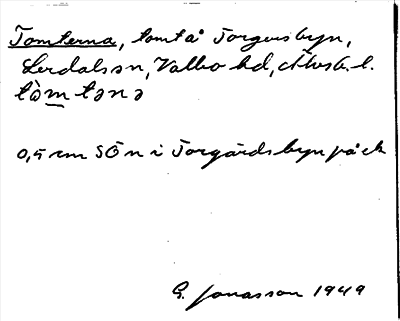 Tomterna, tomt å Torgersbyn,
Lerdals sn, Valbo hd, Älvsb. l.
tòmtənə
0,5 cm SÖ n i Torgårdsbyn på ek
G. Jonasson 1949